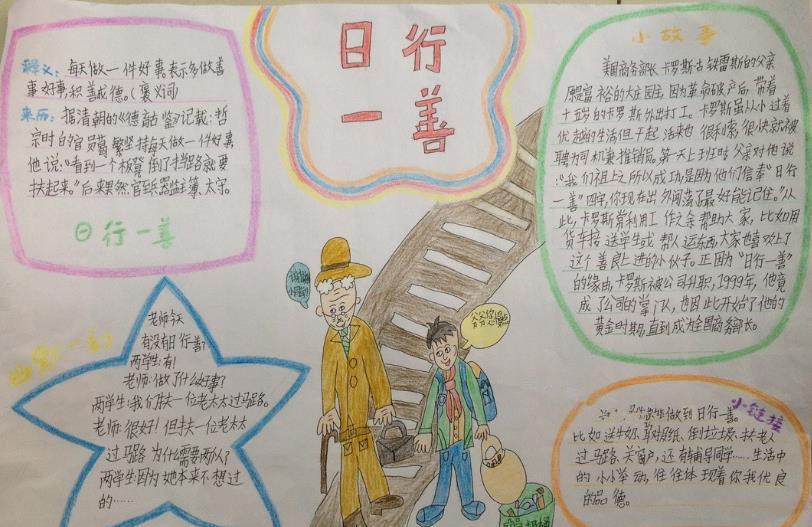 日行
一善
释义：每天做一件好事，表示多做善
事好事，积善成德。（褒义词）
来历：据清朝的《德育鉴》记载：哲
宗时的官员葛繁坚持每天做一件好事
他说：“看到一个板凳倒了挡路就要
扶起来。”后来果然官至监主簿、太守。
日行一善
小故事
美国商务部长卡罗斯·古铁雷斯的父亲
原是富裕的大庄园主，因为革命破产后，带着
十五岁的卡罗斯外出打工。卡罗斯虽从小过着
优越的生活但干起活来也很利索，很快就被
聘为司机兼推销员。第一天上班时，父亲对他说
：“我们祖上之所以成功是因为他们信奉“日行
一善”四字，你现在出外闯荡了最好能记住。”从
此，卡罗斯常利用工作之余帮助大家，比如用
货车接送学生或帮人运东西，大家也喜欢上了
这个善良上进的小伙子。正因为“日行一善”
的缘由，卡罗斯被公司升职，1999年，他竟
成了公司的掌门人，也因此开始了他的
黄金时期，直到成为全国商务部长。
幽默一刻
老师：今天
有没有日行一善？
两学生：有！
老师：做了什么好事？
两学生：我们扶一位老太太过马路。
老师：很好！但扶一位老太太
过马路为什么需要两个人？
两学生：因为她本来不想过
的……
小链接
做到日行一善。
比如送牛奶、剪胡纸、倒垃圾、扶老人
过马路、关窗户，还有辅导同学……生活中
的小小举动，往往体现着你我优良
的品德。